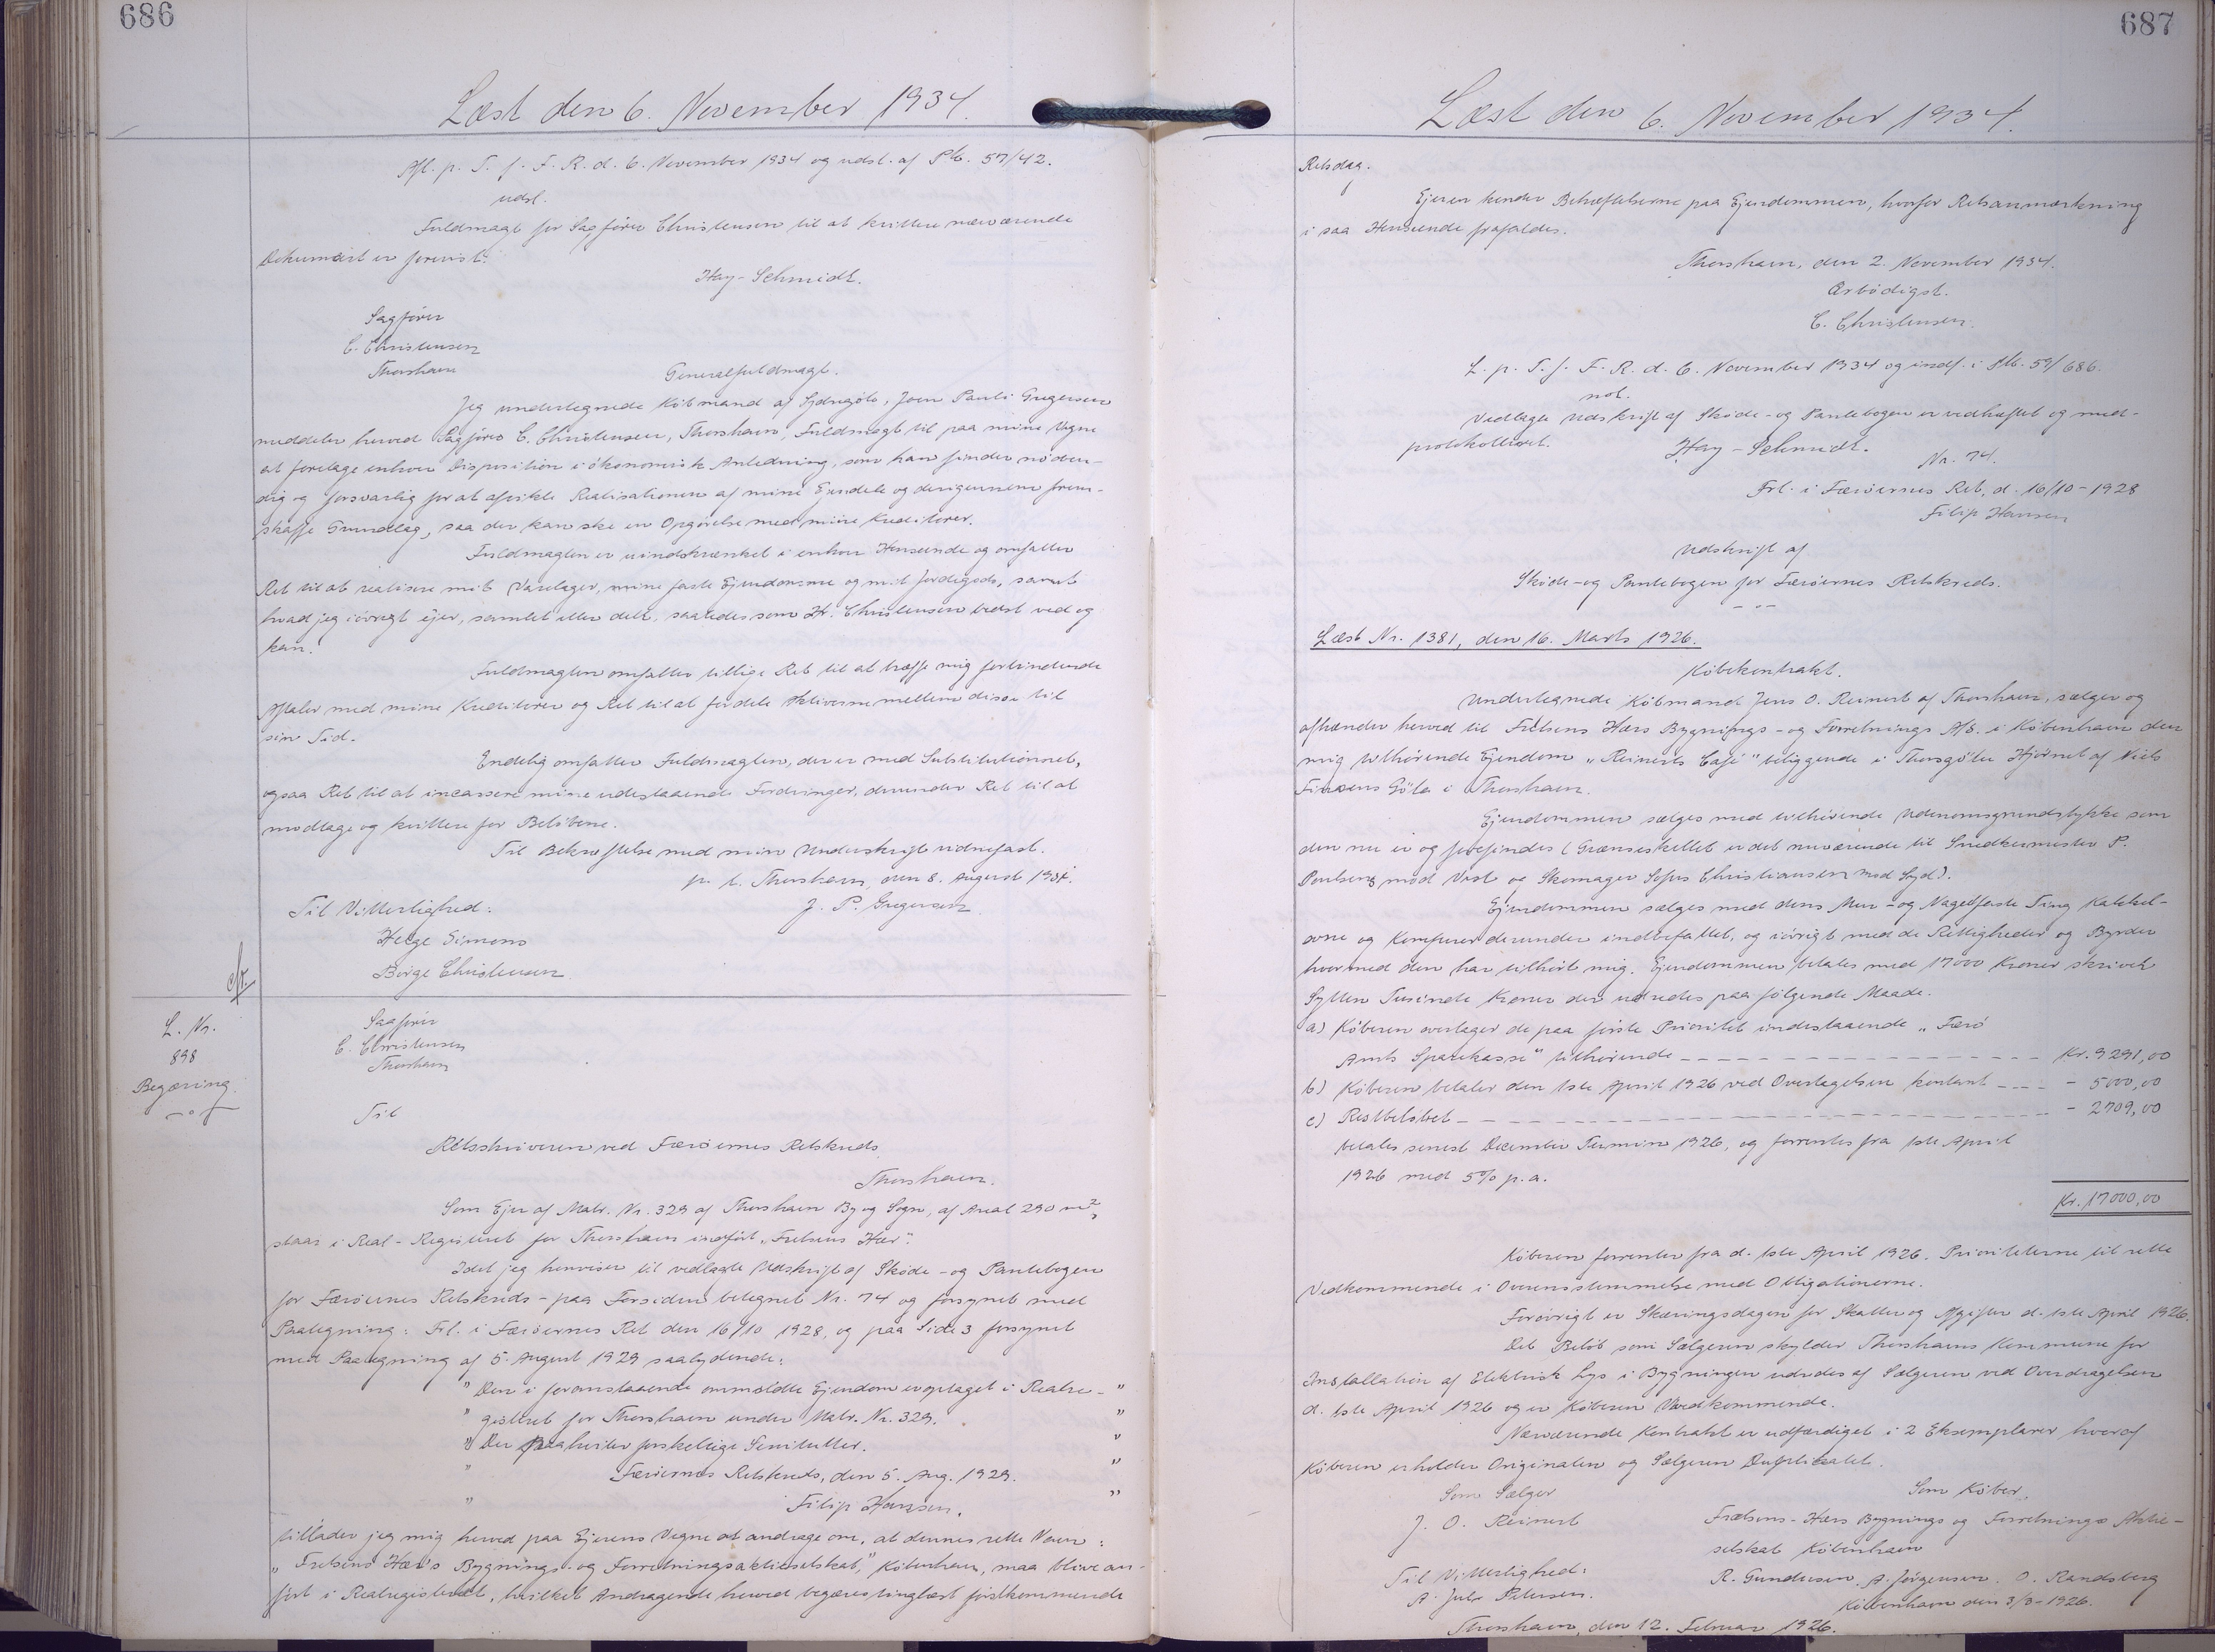 686
Læst den 6. November 1934.
Afl. p. T. f. F. R. d. 6. November 1934 og udsl. af Pb. 57/42.
udsl.
Fuldmagt for Sagfører Christensen til at kvittere nærværende
Dokument er forevist.
Hay-Schmidt.
Sagfører
C. Christensen
Thorshavn
Generalfuldmagt.
Jeg undertegnede Købmand af Sydrugöta, Joen Pauli Gregersen
meddeler herved Sagfører C. Christensen, Thorshavn, Fuldmagt til paa mine Vegne
at foretage enhver Disposition i økonomisk Anledning, som han finder nöden-
dig og forsvarlig for at afvikle Realisationen af mine Ejendele og derigennem frem-
skaffe Grundlag, saa der kan ske en Opgørelse med mine Kreditorer.
Fuldmagten er uindskrænket i enhver Henseende og omfatter
Ret til at realisere mit Varelager, mine faste Ejendomme og mit Jordegods, samt
hvad jeg iøvrigt ejer, samlet eller delt, saaledes som Hr. Christensen bedst ved og
kan.
Fuldmagten omfatter tillige Ret til at træffe mig forbindende
Aftaler med mine Kreditorer og Ret til at fordele Aktiverne mellem disse til
sin Tid.
Endelig omfatter Fuldmagten, der er med Substitutionret,
ogsaa Ret til at incassere mine udestaaende Fordringer, derunder Ret til at
modtage og kvittere for Beløbene.
Til Bekræftelse med min Underskrift vidnefast.
p. t. Thorshavn, den 8. August 1934.
Til Vitterlighed:
J. P. Gregersen
Helge Simons
Börge Christensen
L. Nr.
898
Begæring.
Sagfører
C. Christensen
Thorshavn
Til
Retsskriveren ved Færöernes Retskreds
Thorshavn.
Som Ejer af Matr. Nr. 329 af Thorshavn By og Sogn, af Areal 290 m²,
staar i Real-Registeret for Thorshavn indført "Frelsens Hær".
Idet jeg henviser til vedlagte Udskrift af Skøde- og Pantebogen
for Færöernes Retskreds - paa Forsiden betegnet Nr. 74 og forsynet med
Paategning: Frl. i Færöernes Ret den 16/10 1928, og paa Side 3 forsynet
med Paategning af 5. August 1929 saalydende:
" Den i foranstaaende ommeldte Ejendom er optaget i Realre- "
" gisteret for Thorshavn under Matr. Nr. 329. "
" Der paahviler forskellige Servitutter. "
" Færöernes Retskreds, den 5. Aug. 1929. "
" Filip Hansen. "
tillader jeg mig herved paa Ejerens Vegne at andrage om, at dennes rette Navn:
"Frelsens Hær's Bygnings- og Forretningsaktieselskab," København, maa blive an-
ført i Realregisteret, hvilket Andragende herved begæres tinglæst førstkommende
687
Læst den 6. November 1934.
Retsdag.
Ejeren kender Behæftelserne paa Ejendommen, hvorfor Retsanmærkning
i saa Henseende frafaldes.
Thorshavn, den 2. November 1934.
Ærbødigst.
C. Christensen.
L. p. T. f. F. R. d. 6. November 1934 og indf. i Pb. 59/686.
not.
Vedlagte Udskrift af Skøde- og Pantebogen er vedhæftet og med-
protokolleret.
Hay-Schmidt.
Nr. 74.
Frl. i Færöernes Ret, d. 16/10-1928
Filip Hansen
Udskrift af
Skøde- og Pantebogen for Færöernes Retskreds.
Læst Nr. 1381, den 16. Marts 1926.
Købekontrakt.
Undertegnede Købmand Jens O. Reinert af Thorshavn, sælger og
afhænder herved til Frelsens Hærs Bygnings- og Forretnings A/S. i København den
mig tilhørende Ejendom "Reinerts Café" beliggende i Thorsgöta Hjørnet af Niels
Finsens Göta i Thorshavn.
Ejendommen sælges med tilhørende Udenomsgrundstykke som
den nu er og forefindes (Grænseskellet er det nuværende til Snedkermester P.
Poulsens mod Vest og Skomager Sofus Christiansen mod Syd).
Ejendommen sælges med dens Mur- og Nagelfaste Ting Kakkel-
ovne og Komfurer derunder indbefattet, og iøvrigt med de Rettigheder og Byrder
hvormed den har tilhørt mig. Ejendommen betales med 17000 Kroner skriver
Sytten Tusinde Kroner der udredes paa følgende Maade.
a) Køberen overtager de paa første Prioritet indestaaende "Færö
Amts Sparekasse" tilhørende — Kr. 9291,00
b) Køberen betaler den 1ste April 1926 ved Overtagelsen kontant — - 5000,00
c) Restbeløbet — - 2709,00
betales senest December Termin 1926, og forrentes fra 1ste April
1926 med 5% p.a.
Kr. 17000,00
Køberen forrenter fra d. 1ste April 1926. Prioriteterne til rette
Vedkommende i Overensstemmelse med Obligationerne.
Forøvrigt er Skæringsdagen for Skatter og Afgifter d. 1ste April 1926.
Det Beløb som Sælgeren skylder Thorshavns Kommune for
Installation af Elektrisk Lys i Bygningen udredes af Sælgeren ved Overdragelsen
d. 1ste April 1926 og er Køberen Uvedkommende.
Nærværende Kontrakt er udfærdiget i 2 Eksemplarer hvoraf
Køberen erholder Originalen og Sælgeren Duplikatet.
Som Sælger
Som Køber.
J. O. Reinert
Frelsens-Hærs Bygnings og Forretnings Aktie-
selskab København
Til Vitterlighed:
R. Gundersen. A. Jørgensen. O. Randsberg
A. Juls Petersen.
København den 3/3-1926.
Thorshavn, den 12. Februar 1926.